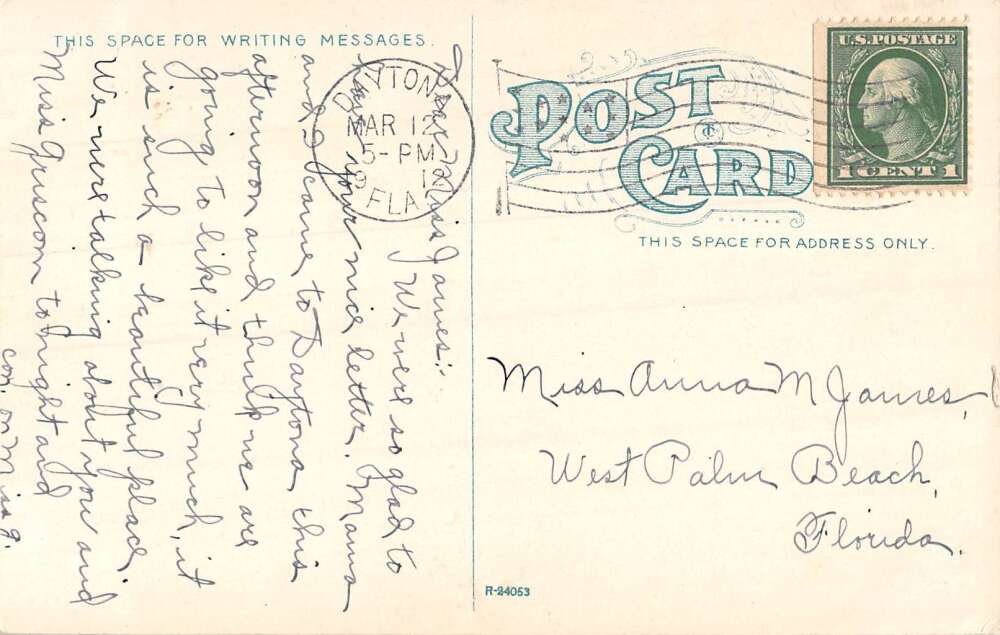 THIS SPACE FOR WRITING MESSAGES.
Dear Miss James:-
We were so glad to
have your nice letter. Mama
and I came to Daytona this
afternoon and think we are
going to like it very much, it
is such a beautiful place.
We were talking about you and
Miss Griscom to-night and
con. on Miss G.
DAYTONA
MAR 12
5-PM
1912
FLA.
POST CARD
U.S. POSTAGE
1 CENT 1
THIS SPACE FOR ADDRESS ONLY.
Miss Anna M James,
West Palm Beach,
Florida.
R-24053